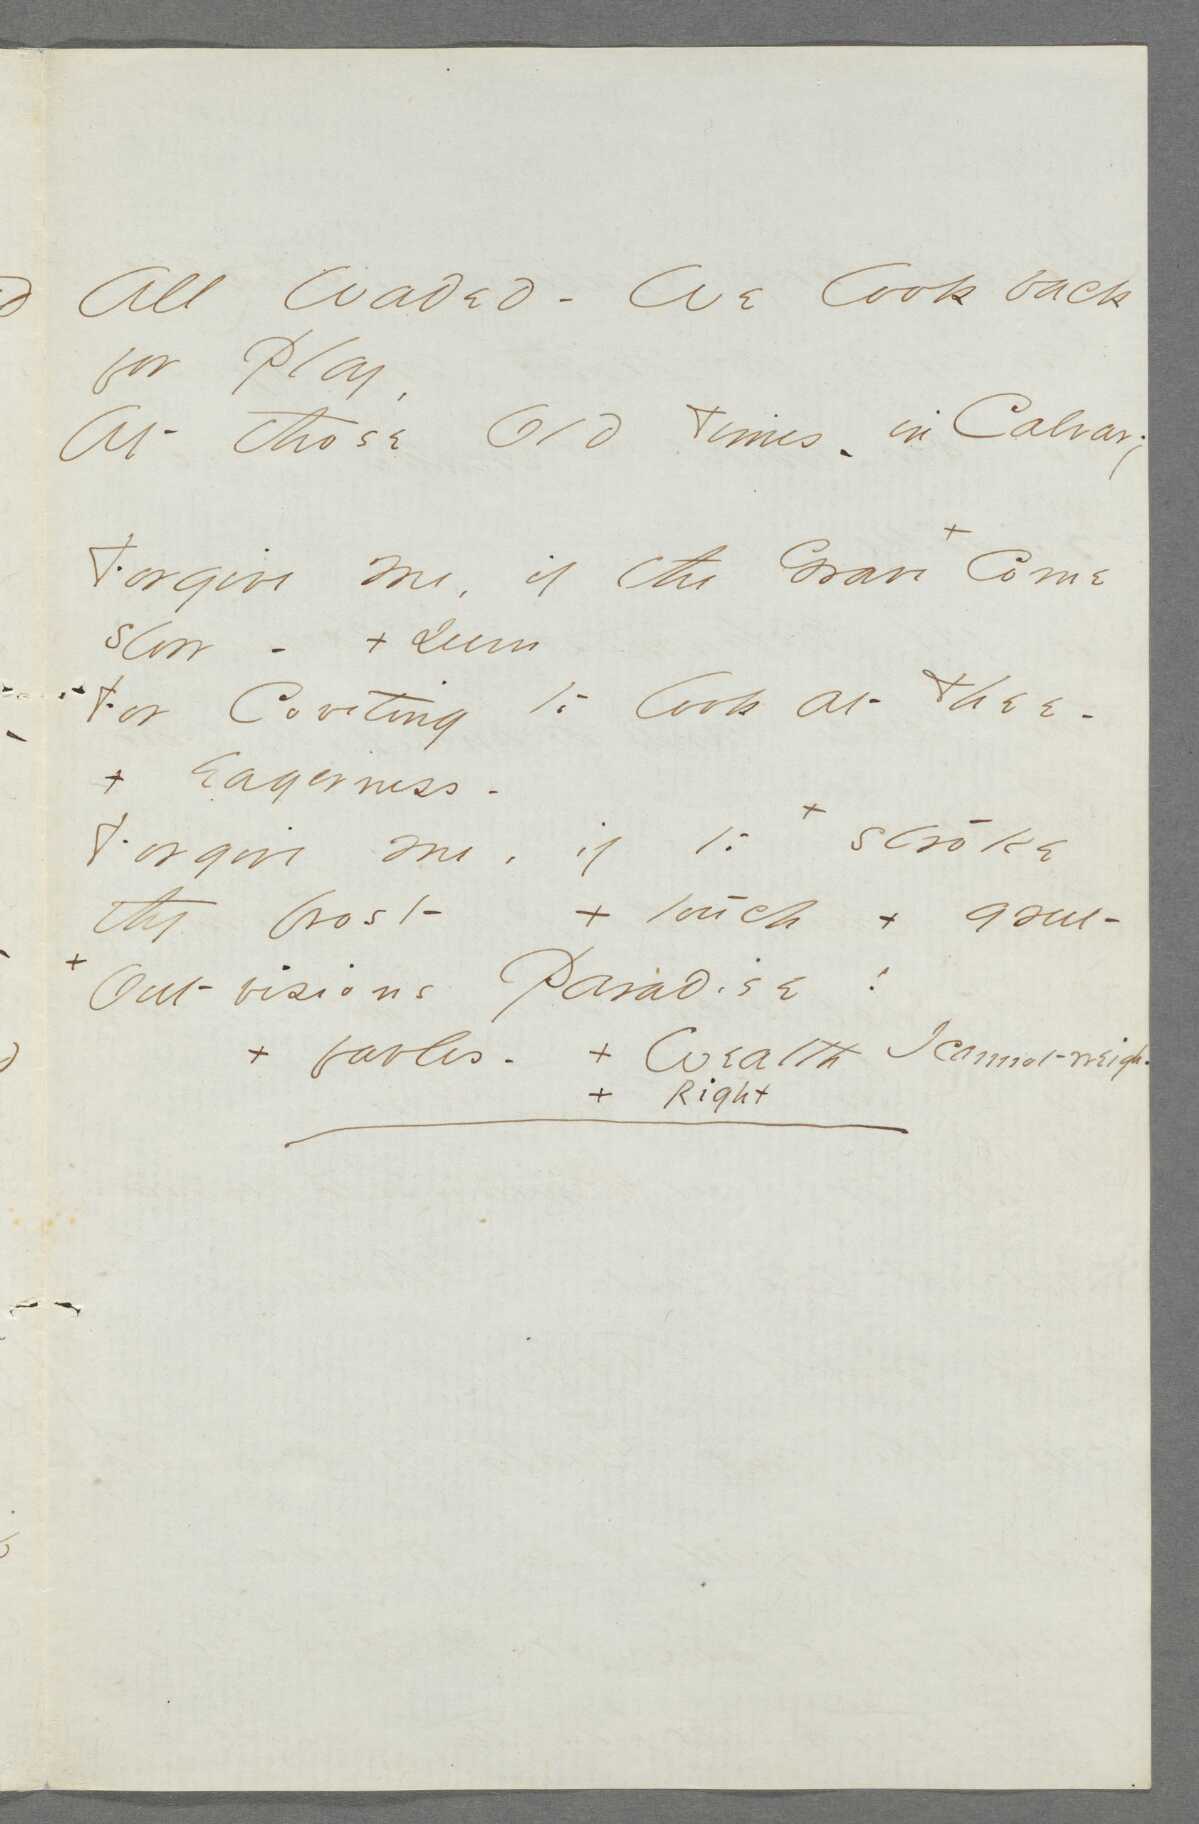 All Waded - We look back
for Play,
At those Old Times - in Calvary,
Forgive me, if the Grave + Come
slow - + Seem
For Coveting to look at Thee -
+ Eagerness -
Forgive me, if to + stroke
thy frost + touch + greet
+ Out-visions Paradise !
+ fables - + Wealth I cannot weigh -
+ Right